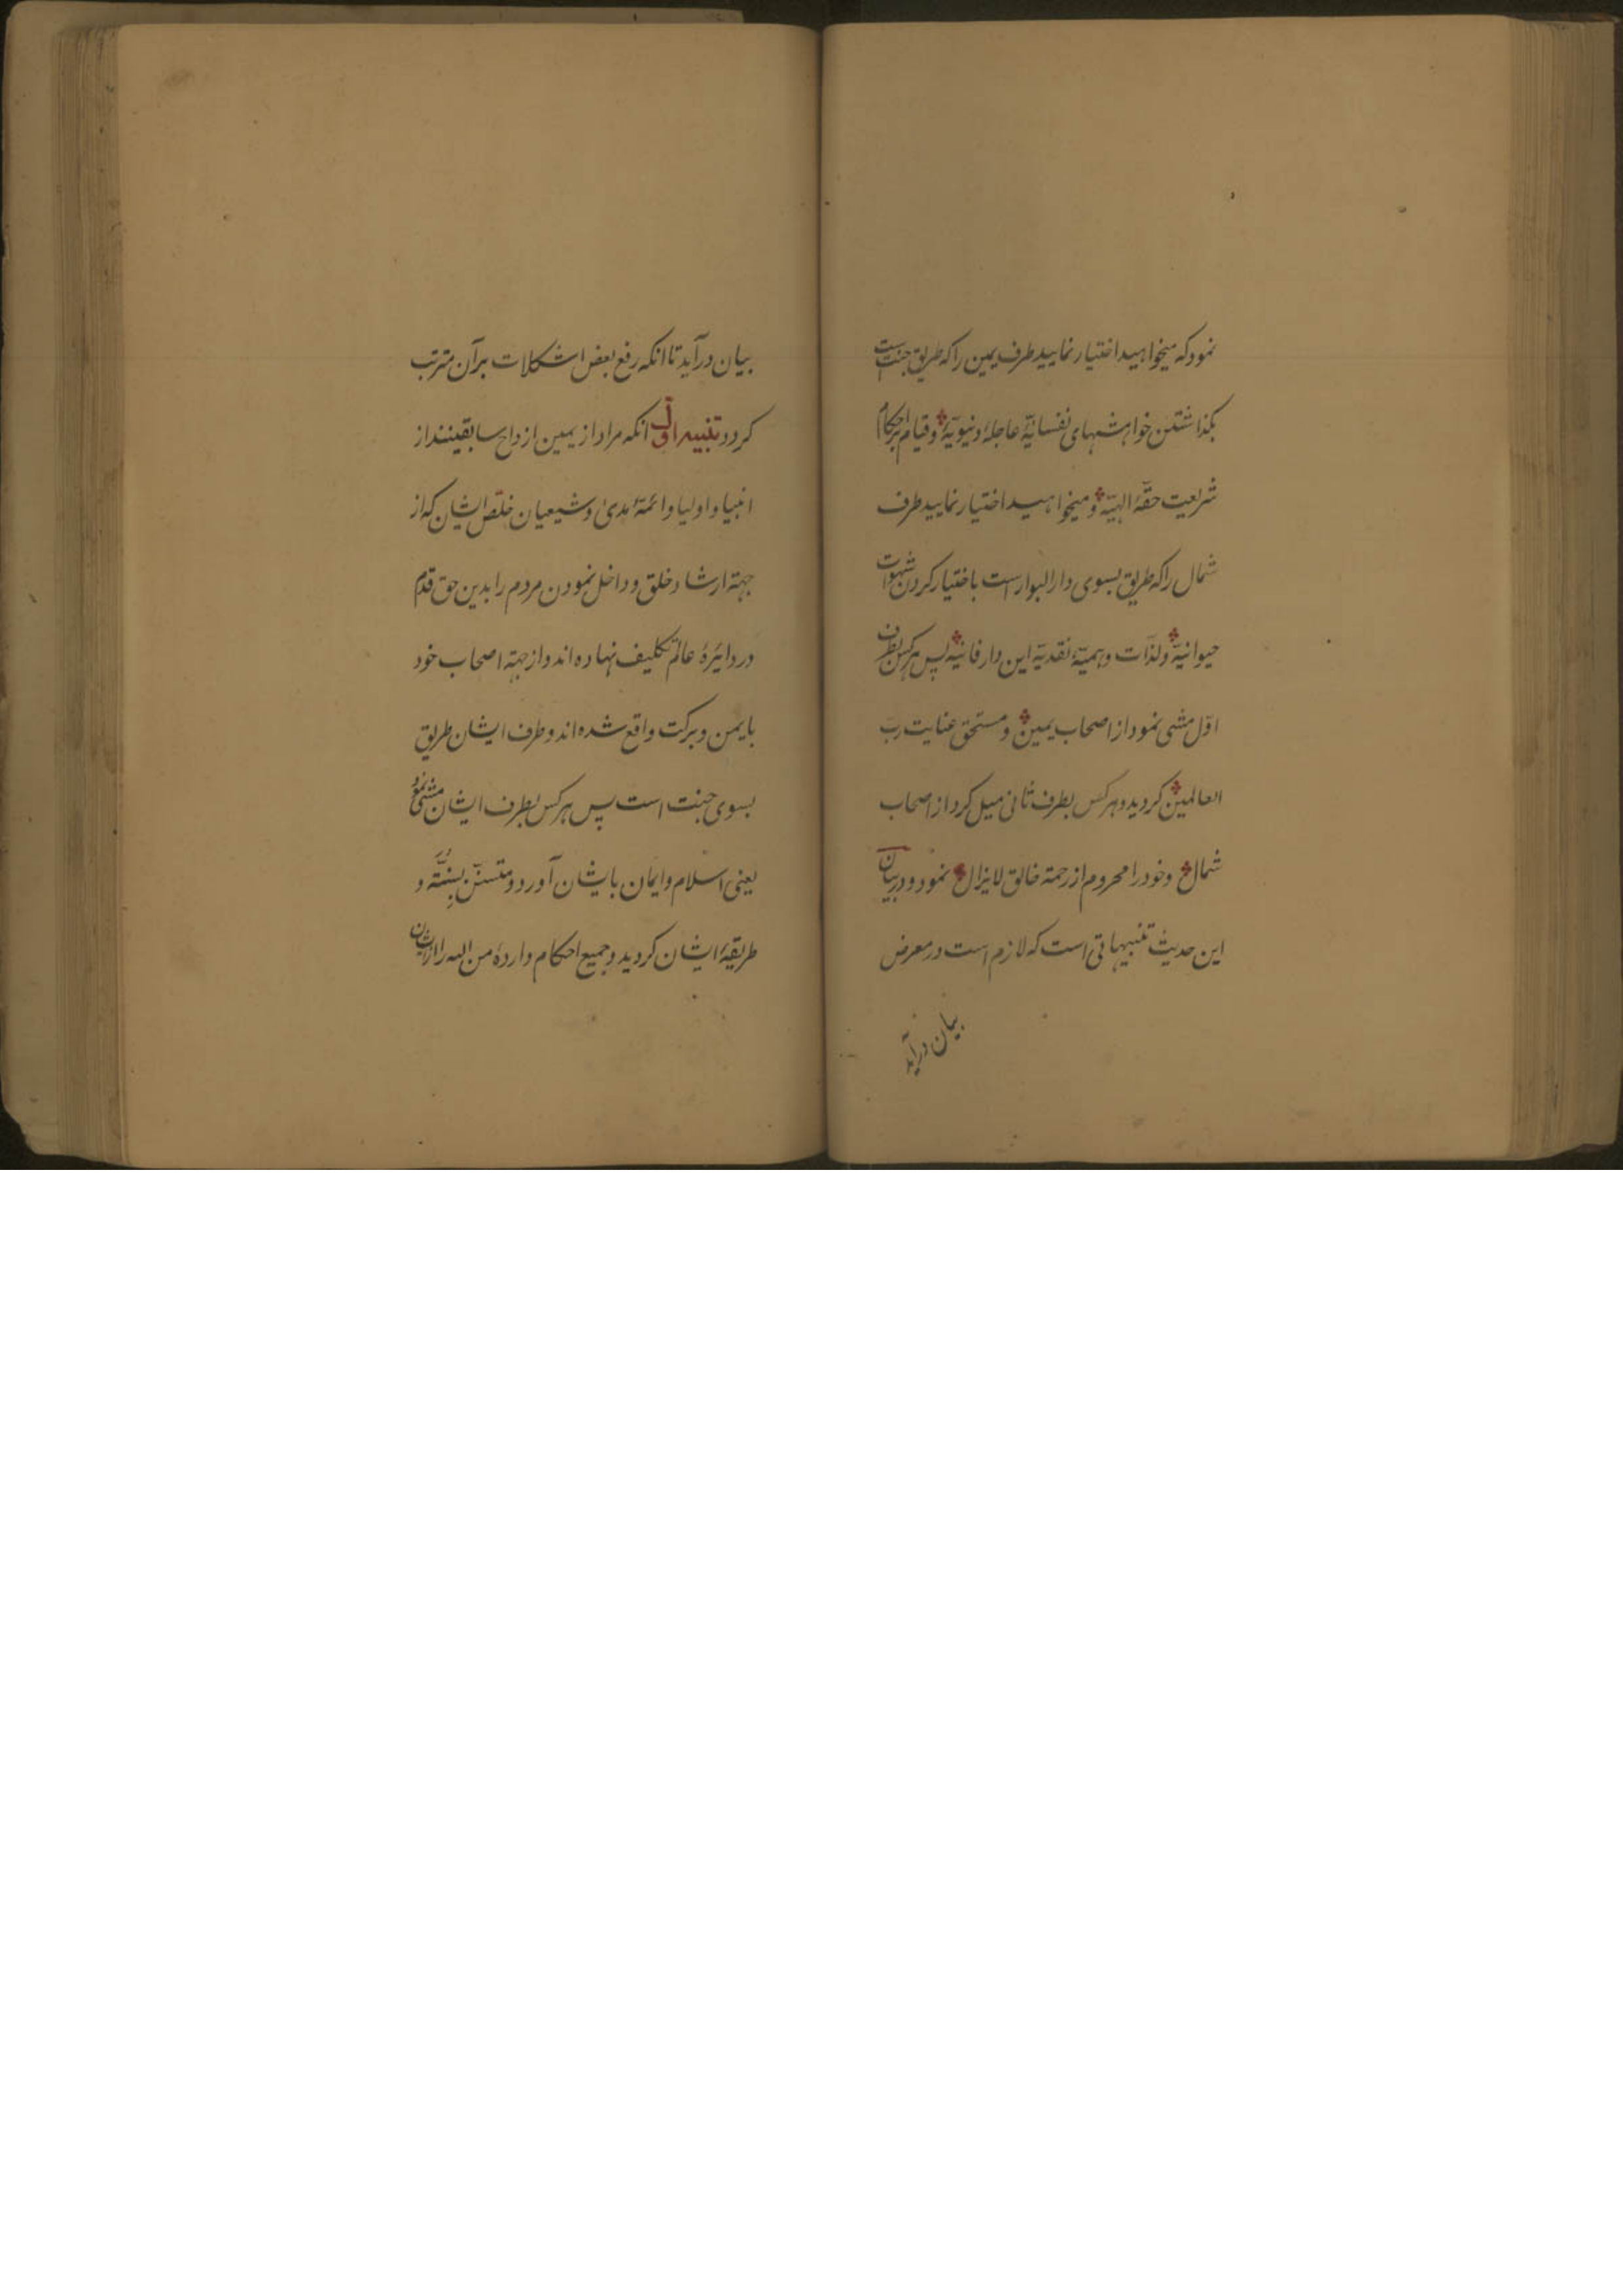 نمود که میخواهید اختیار نمایید طرف یمین را که طریق جنت است
بکذاشتن خواهشهای نفسانیّهٔ عاجلهٔ دنیویّه و قیام بر احکام
شریعت حقّهٔ الهیّه و میخواهید اختیار نمایید طرف
شمال را که طریق بسوی دار البوار است باختیار کردن شهوات
حیوانیّه و لذّات وهمیّهٔ نقدیّه این دار فانیه پس هر کس بطرف
اوّل مشی نمود از اصحاب یمین و مستحق عنایت ربّ
العالمین کردید و هر کس بطرف ثانی میل کرد از اصحاب
شمال و خود را محروم از رحمة خالق لایزال نمود و در بیان
این حدیث تنبیهاتی است که لازم است در معرض
بیان درآید
بیان درآید تا انکه رفع بعض اشکلات بر آن مترتب
کردد تنبیه اوّل انکه مراد از یمین ازواج سابقینند از
انبیا و اولیا و ائمّهٔ هدیٰ و شیعیان خلّص ایشان که از
جهة ارشاد خلق و داخل نمودن مردم را بدین حق قدم
در دایرهٔ عالم تکلیف نهاده اند و از جهة اصحاب خود
با یمن و برکت واقع شده اند و طرف ایشان طریق
بسوی جنت است پس هر کس بطرف ایشان مشی نمود
یعنی اسلام و ایمان بایشان آورد و متسنّن بسنّة و
طریقهٔ ایشان کردید و جمیع احکام واردهٔ من الله را از ایشان